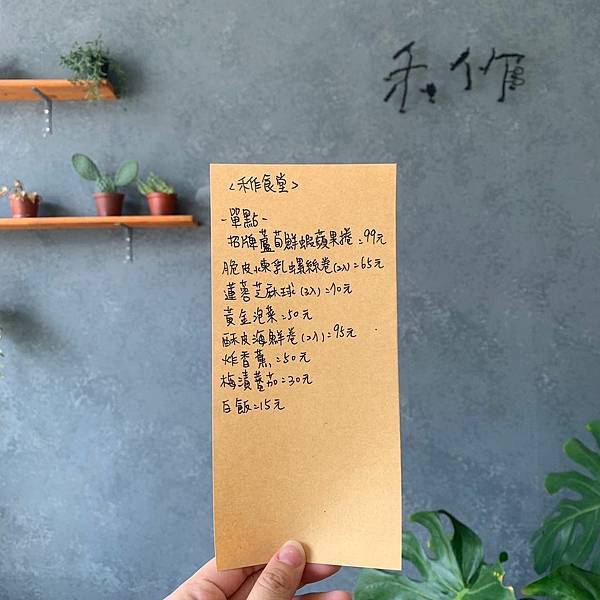 禾作
<禾作食堂>
-單點-
招牌蘆荀鮮蝦蘋果捲=99元
脆皮煉乳螺絲卷(2入)=65元
蓮蓉芝麻球(3入)=70元
黃金泡菜=50元
酥皮海鮮卷(2入)=95元
炸香蕉=50元
梅漬蕃茄=30元
白飯=15元